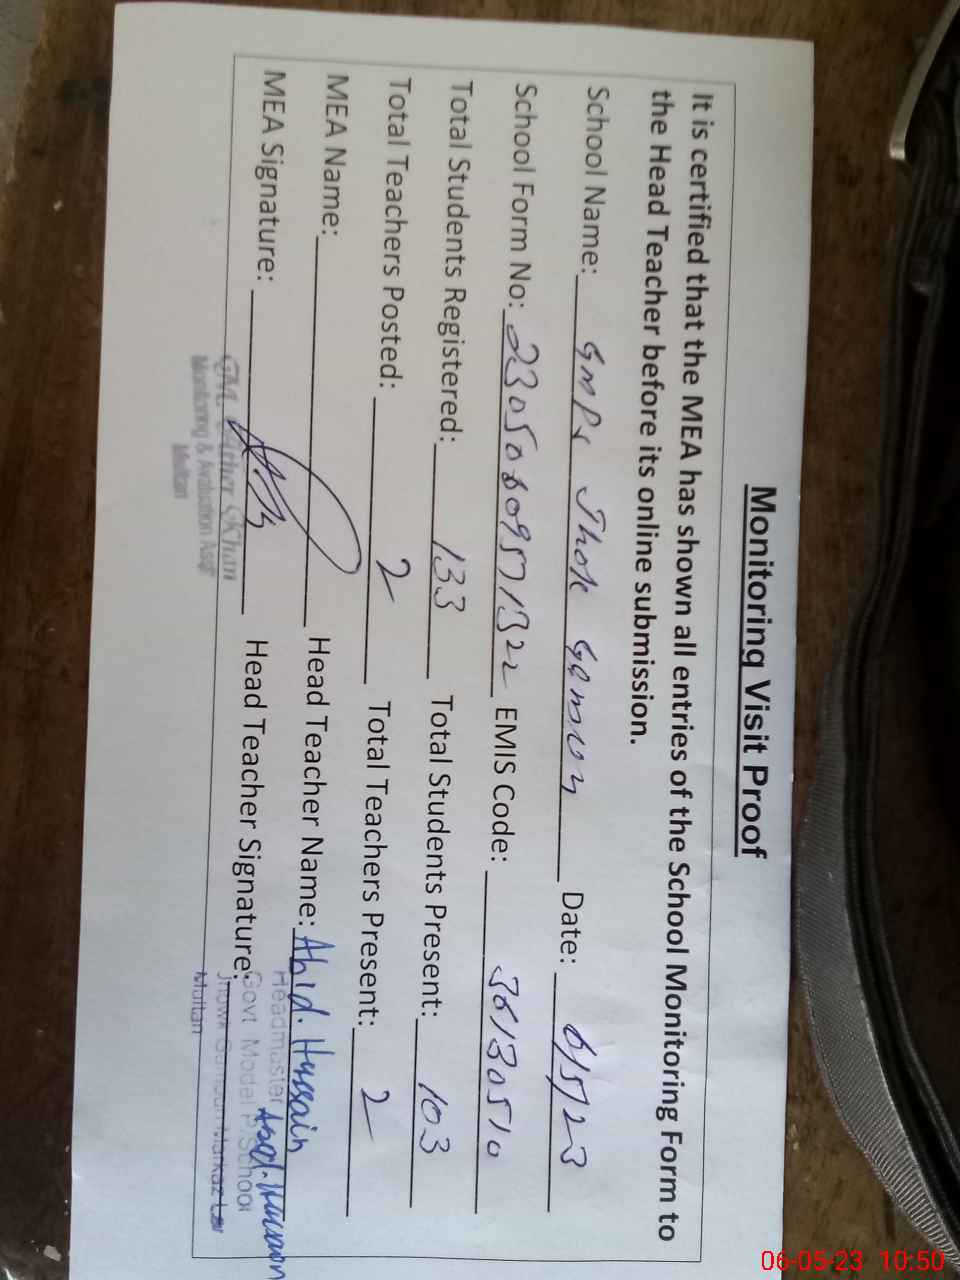 Monitoring Visit Proof
It is certified that the MEA has shown all entries of the School Monitoring Form to
the Head Teacher before its online submission.
School Name: GMPS Jhok Gamun Date: 6/5/23
School Form No: EMIS Code: 36130510
Total Students Registered: 133 Total Students Present: 103
Total Teachers Posted: 2 Total Teachers Present: 2
MEA Name: Head Teacher Name: Abid. Hussain
MEA Signature: Head Teacher Signature: Abid. Hussain
Khan
Monitoring & Evaluation Asst
Multan
Headmaster
Govt Model P School
Markaz Lar
Multan
06-05-23 10:50